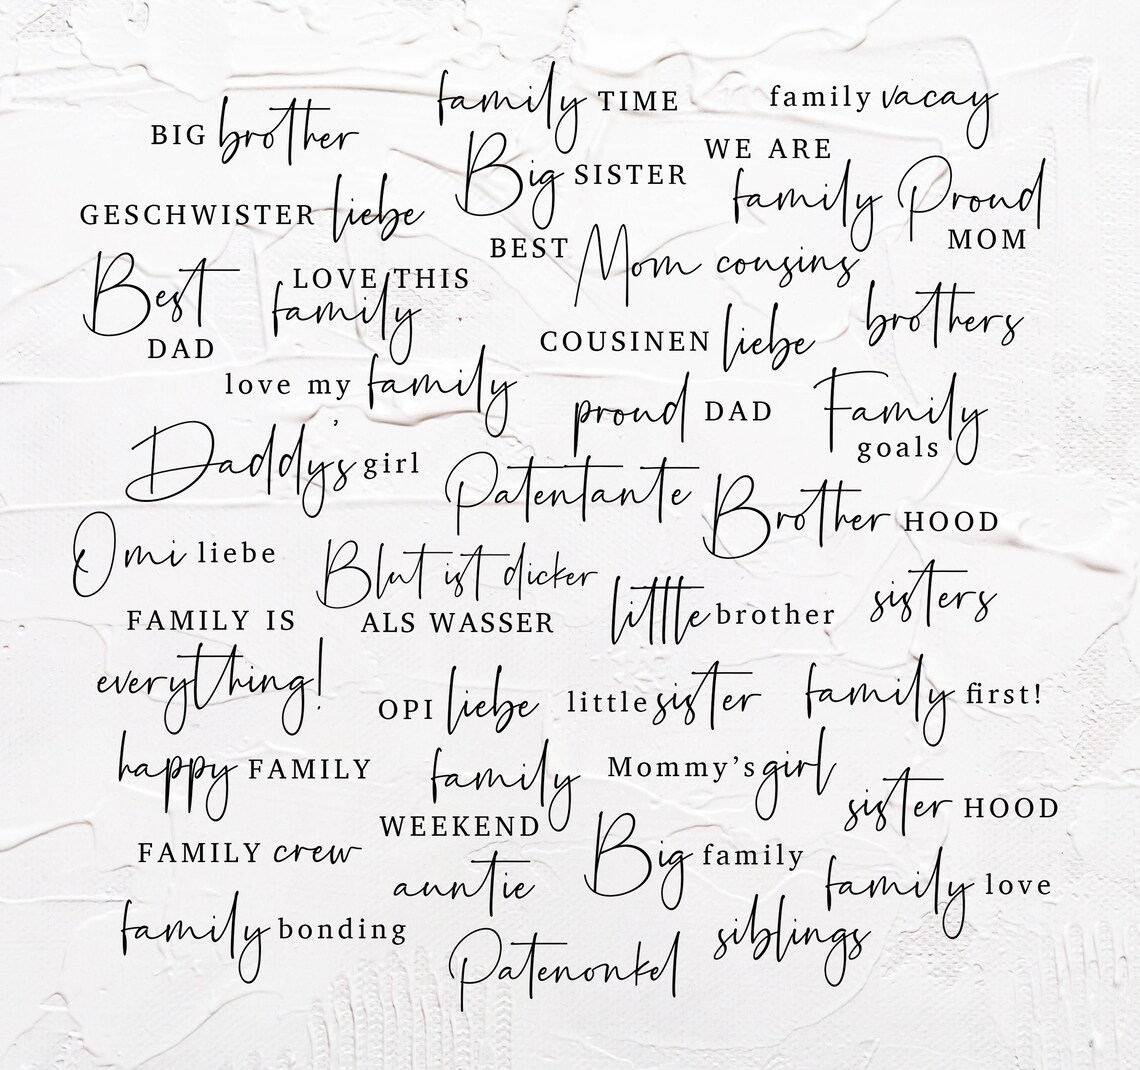 family TIME
family vacay
BIG brother
Big SISTER
WE ARE
family
Proud
MOM
GESCHWISTER liebe
BEST Mom
cousins
Best
DAD
LOVE THIS
family
brothers
COUSINEN liebe
love my family
proud DAD
Family
goals
Daddy's girl
Patentante
Brother HOOD
Omi liebe
Blut ist dicker
ALS WASSER
little brother
sisters
FAMILY IS
everything!
OPI liebe
little sister
family first!
happy FAMILY
family
WEEKEND
Mommy's girl
sister HOOD
FAMILY crew
auntie
Big family
family love
family bonding
Patenonkel
siblings